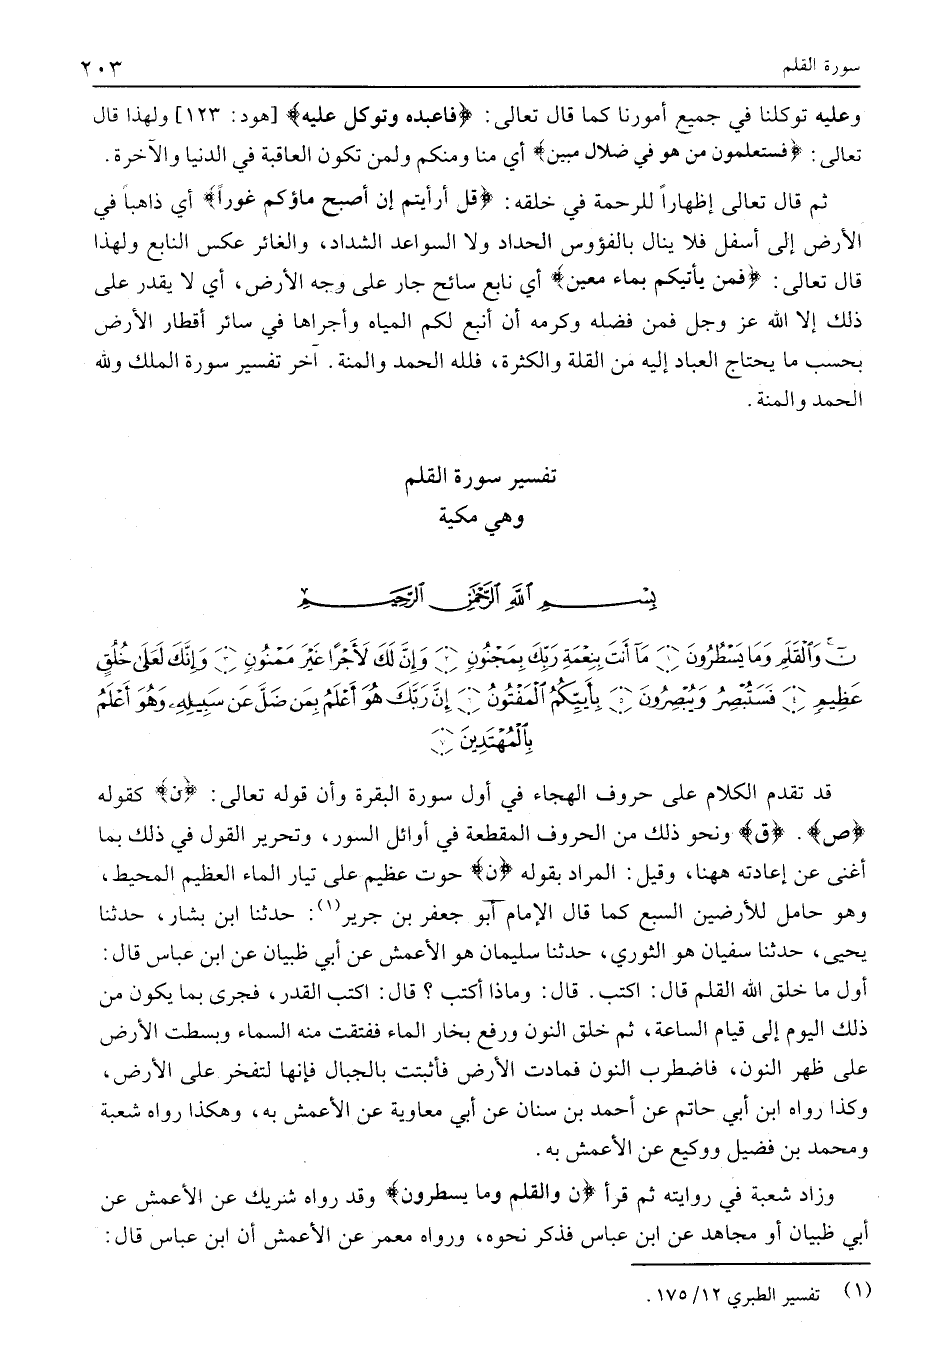 سورة القلم ٢٠٣
وعليه توكلنا في جميع أمورنا كما قال تعالى: ﴿فاعبده وتوكل عليه﴾ [هود: ١٢٣] ولهذا قال
تعالى: ﴿فستعلمون من هو في ضلال مبين﴾ أي منا ومنكم ولمن تكون العاقبة في الدنيا والآخرة.
ثم قال تعالى إظهاراً للرحمة في خلقه: ﴿قل أرأيتم إن أصبح ماؤكم غوراً﴾ أي ذاهباً في
الأرض إلى أسفل فلا ينال بالفؤوس الحداد ولا السواعد الشداد، والغائر عكس النابع ولهذا
قال تعالى: ﴿فمن يأتيكم بماء معين﴾ أي نابع سائح جار على وجه الأرض، أي لا يقدر على
ذلك إلا الله عز وجل فمن فضله وكرمه أن أنبع لكم المياه وأجراها في سائر أقطار الأرض
بحسب ما يحتاج العباد إليه من القلة والكثرة، فلله الحمد والمنة. آخر تفسير سورة الملك ولله
الحمد والمنة.
تفسير سورة القلم
وهي مكية
بِسْمِ ٱللَّهِ ٱلرَّحْمَٰنِ ٱلرَّحِيمِ
نٓ ۚ وَٱلْقَلَمِ وَمَا يَسْطُرُونَ ﴿١﴾ مَآ أَنتَ بِنِعْمَةِ رَبِّكَ بِمَجْنُونٍ ﴿٢﴾ وَإِنَّ لَكَ لَأَجْرًا غَيْرَ مَمْنُونٍ ﴿٣﴾ وَإِنَّكَ لَعَلَىٰ خُلُقٍ
عَظِيمٍ ﴿٤﴾ فَسَتُبْصِرُ وَيُبْصِرُونَ ﴿٥﴾ بِأَييِّكُمُ ٱلْمَفْتُونُ ﴿٦﴾ إِنَّ رَبَّكَ هُوَ أَعْلَمُ بِمَن ضَلَّ عَن سَبِيلِهِۦ وَهُوَ أَعْلَمُ
بِٱلْمُهْتَدِينَ ﴿٧﴾
قد تقدم الكلام على حروف الهجاء في أول سورة البقرة وأن قوله تعالى: ﴿ن﴾ كقوله
﴿ص﴾. ﴿ق﴾ ونحو ذلك من الحروف المقطعة في أوائل السور، وتحرير القول في ذلك بما
أغنى عن إعادته ههنا، وقيل: المراد بقوله ﴿ن﴾ حوت عظيم على تيار الماء العظيم المحيط،
وهو حامل للأرضين السبع كما قال الإمام أبو جعفر بن جرير(١): حدثنا ابن بشار، حدثنا
يحيى، حدثنا سفيان هو الثوري، حدثنا سليمان هو الأعمش عن أبي ظبيان عن ابن عباس قال:
أول ما خلق الله القلم قال: اكتب. قال: وماذا أكتب ؟ قال: اكتب القدر، فجرى بما يكون من
ذلك اليوم إلى قيام الساعة، ثم خلق النون ورفع بخار الماء ففتقت منه السماء وبسطت الأرض
على ظهر النون، فاضطرب النون فمادت الأرض فأثبتت بالجبال فإنها لتفخر على الأرض،
وكذا رواه ابن أبي حاتم عن أحمد بن سنان عن أبي معاوية عن الأعمش به، وهكذا رواه شعبة
ومحمد بن فضيل ووكيع عن الأعمش به.
وزاد شعبة في روايته ثم قرأ ﴿ن والقلم وما يسطرون﴾ وقد رواه شريك عن الأعمش عن
أبي ظبيان أو مجاهد عن ابن عباس فذكر نحوه، ورواه معمر عن الأعمش أن ابن عباس قال:
(١) تفسير الطبري ١٢/ ١٧٥.